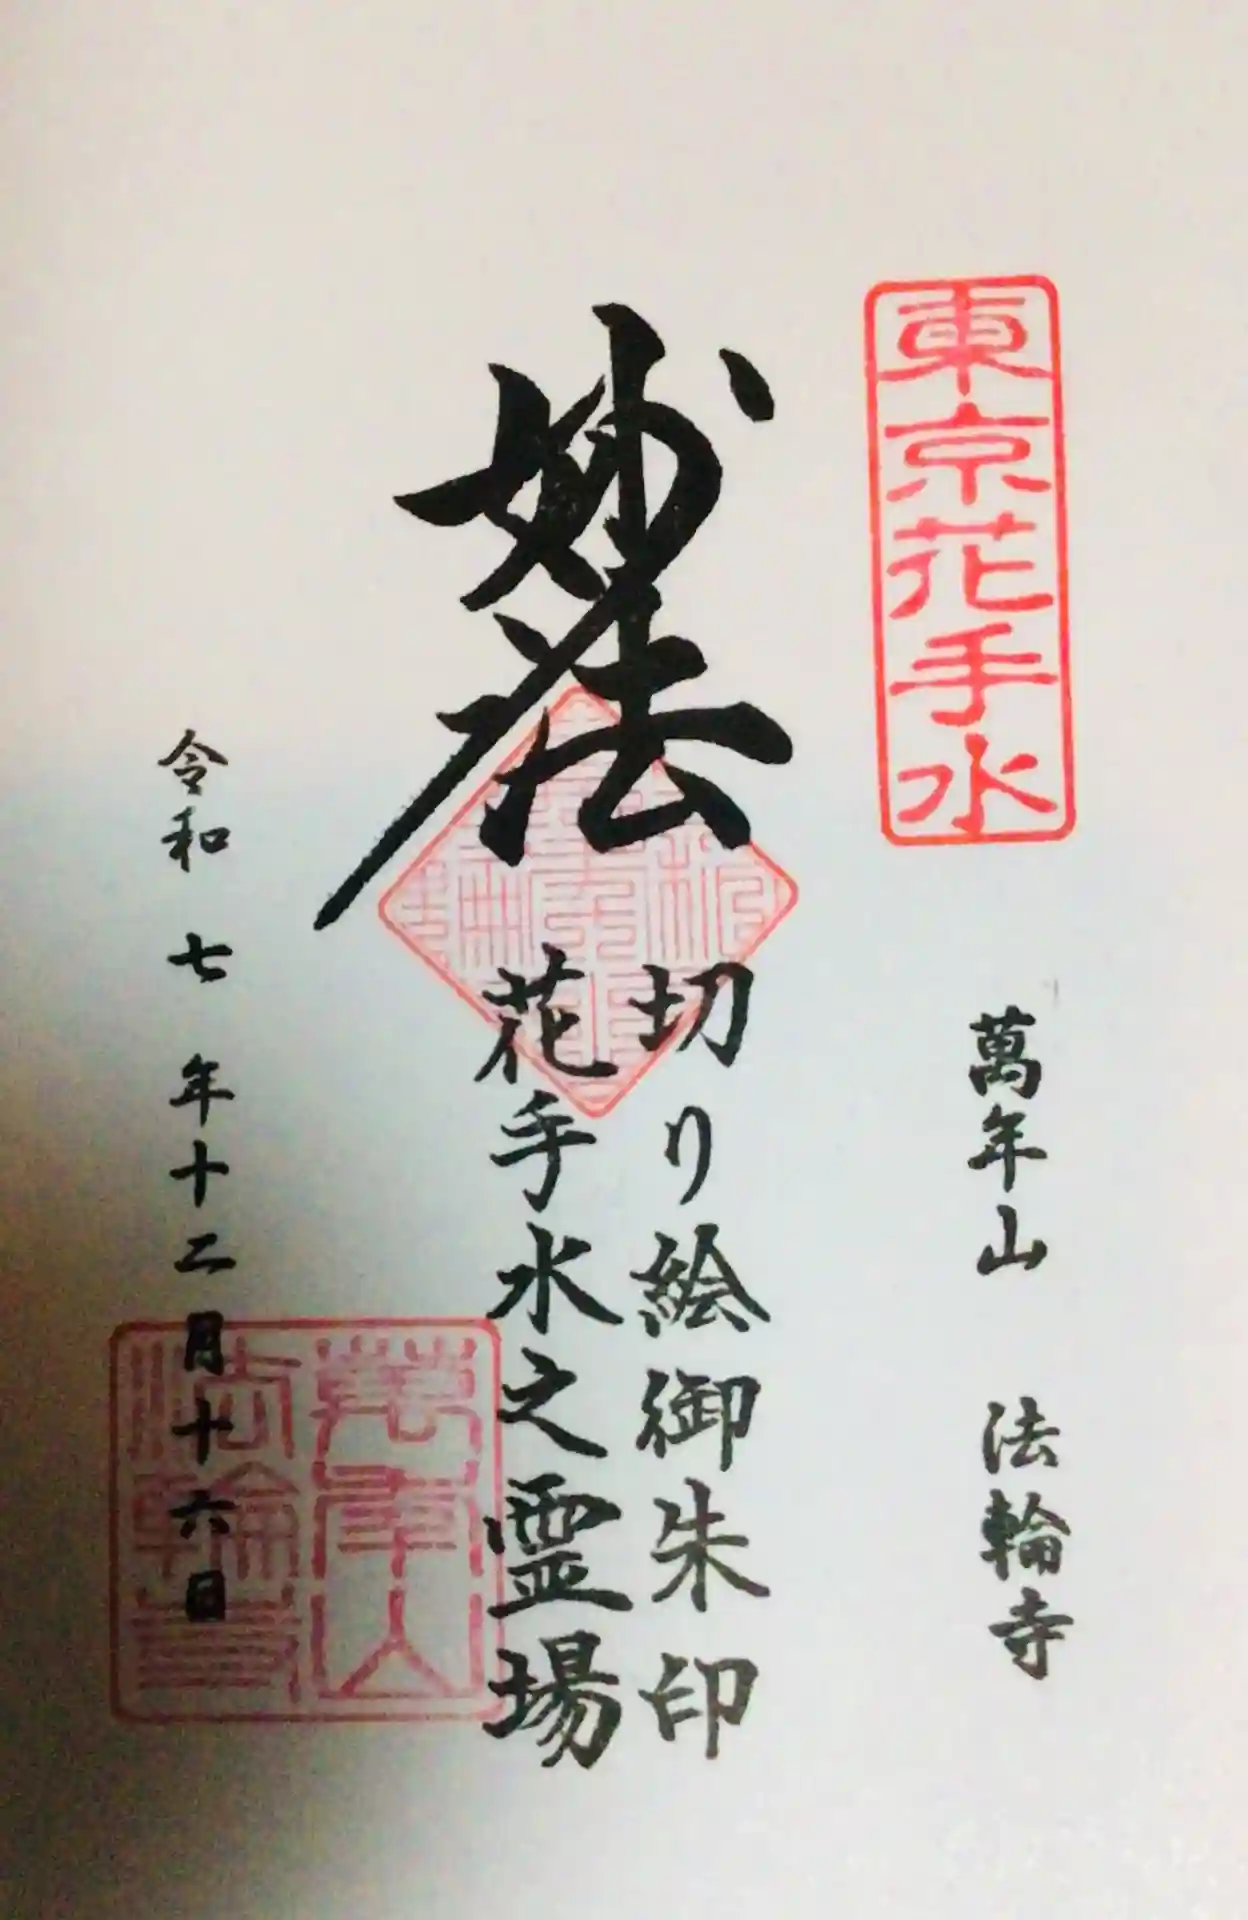 東京花手水
萬年山 法輪寺
妙法
切り絵御朱印
花手水之霊場
令和七年十二月十六日
萬年山
法輪寺